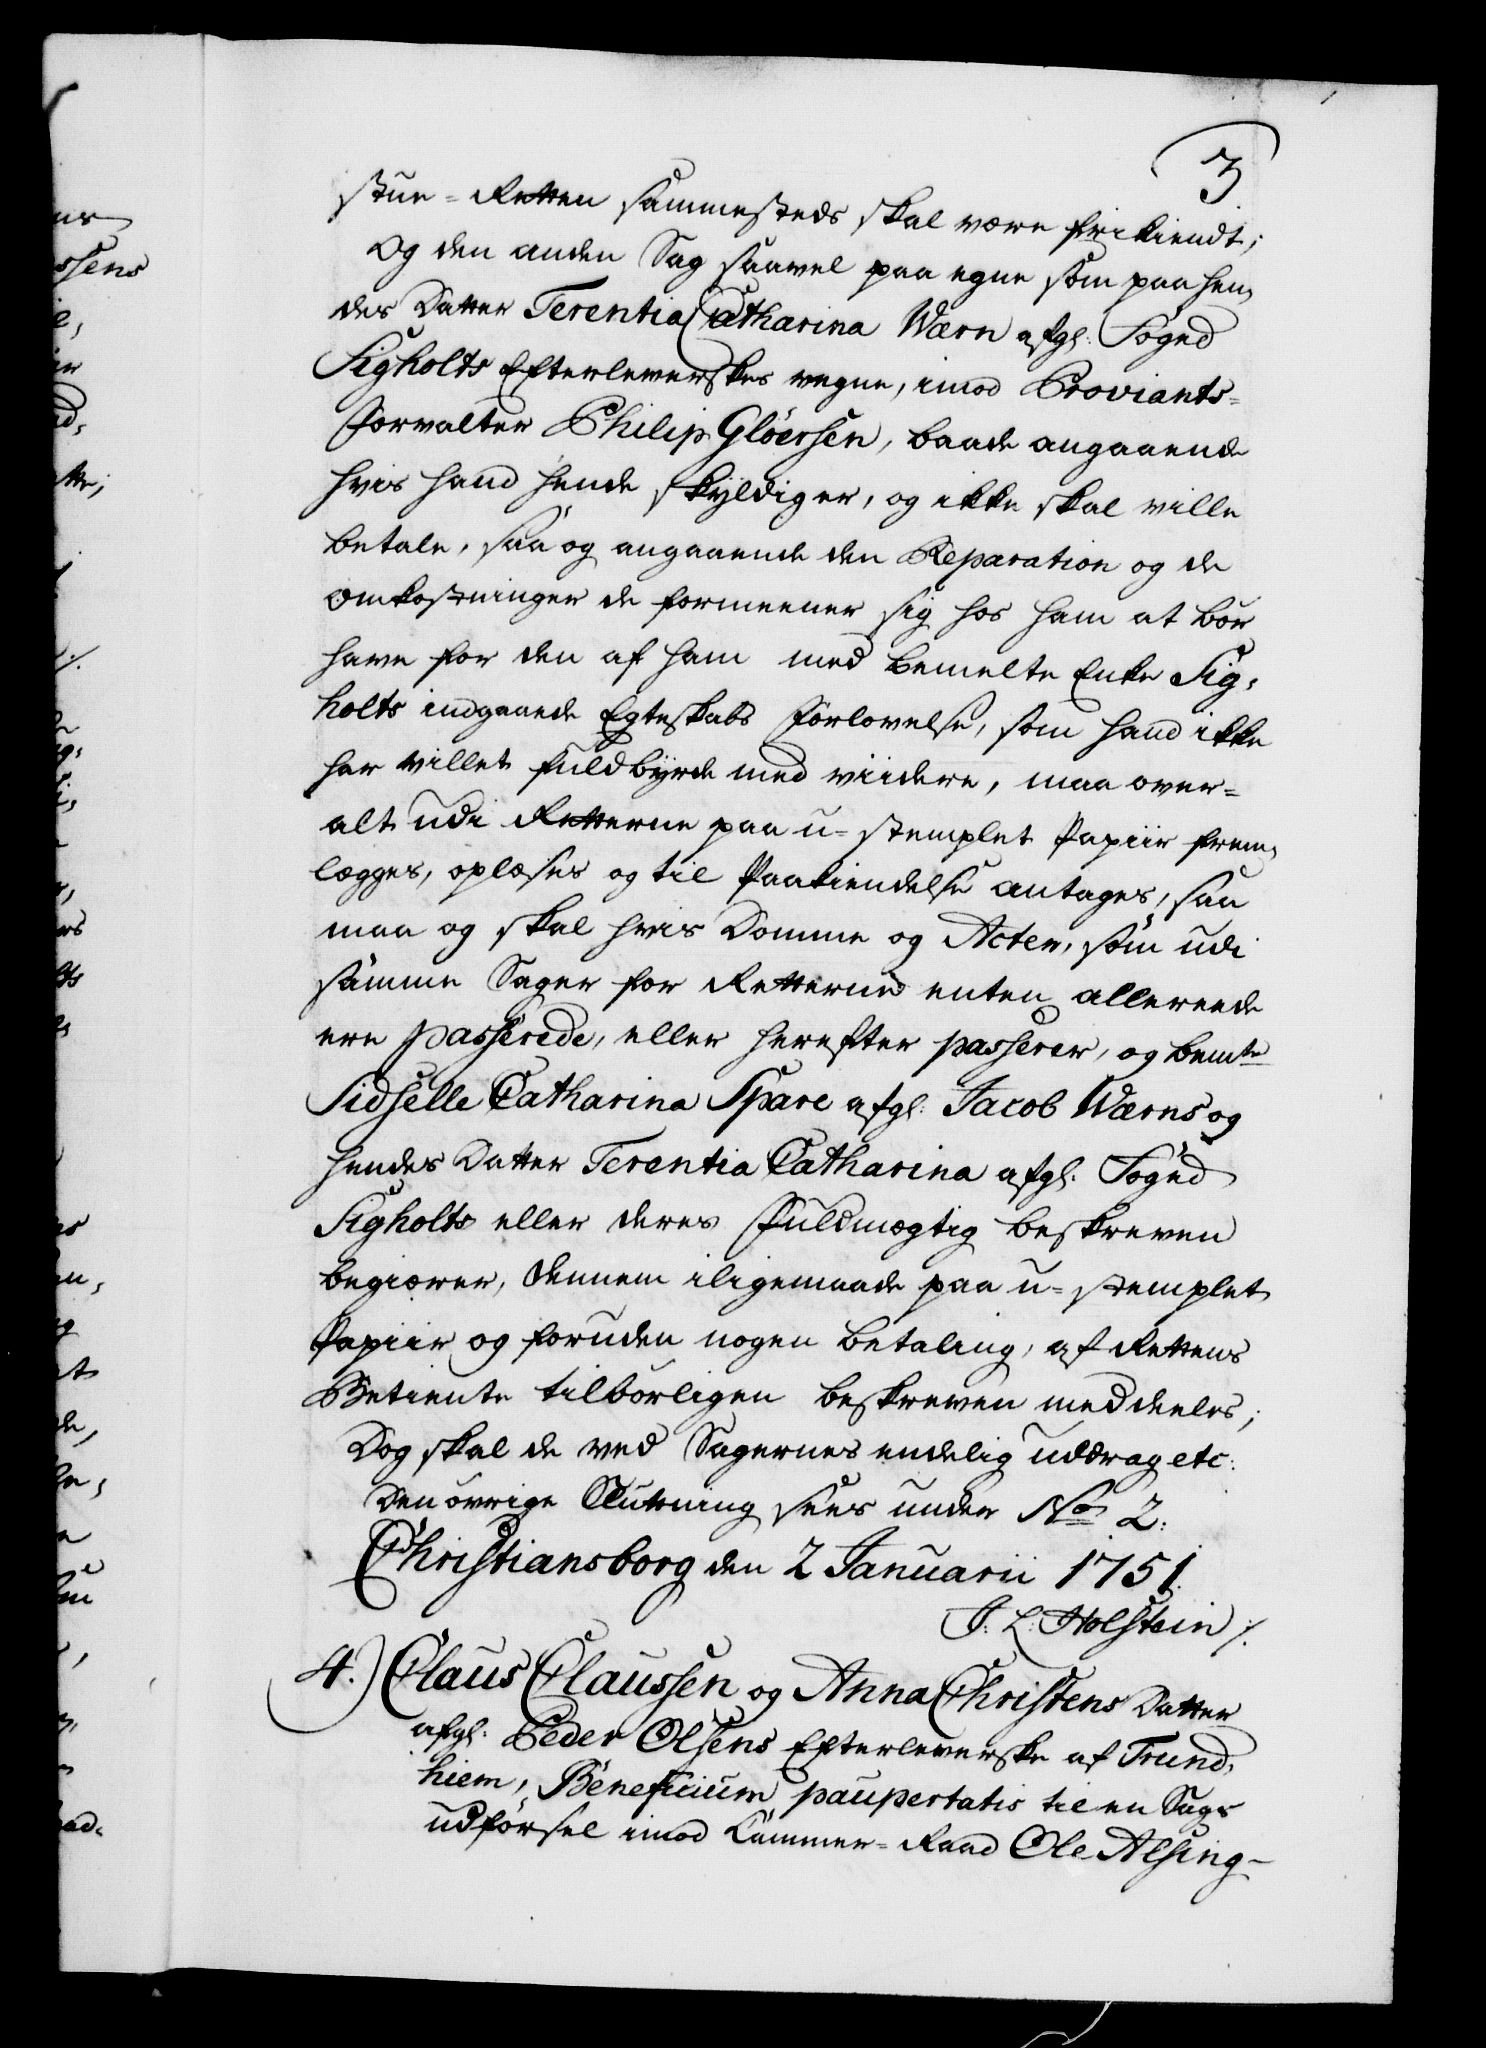 3
stue-Retten sammesteds skal være frikiendt;
Og den anden Sag saavel paa egne som paa hen,
des Datter Terentia Catharina Wærn afgl: Foged
Sigholts Efterleverskes vegne, imod Proviants-
forvalter Philip Gløersen, baade angaaende
hvis hand hende skyldiger, og ikke skal ville
betale, saa og angaaende den Reparation og de
omkostninger de formeener sig hos ham at bør
have for den af ham med bemelte Enke Sig,
holts indgaaede Egteskabs Forlovelse, som hand ikke
har villet fuldbyrde med viidere, maa over-
alt udi Retterne paa u-stemplet Papiir frem,
lægges, oplæses og til Paakiendelse antages, saa
maa og skal hvis Domme og Acter, som udi
samme Sager for Retterne enten allereede
ere passerede, eller herefter passerer, og bemte
Sidselle Catharina Spare afgl: Jacob Wærns og
hendes Datter Terentia Catharina afgl: Foged
Sigholts eller deres Fuldmægtig beskreven
begiærer, dennem iligemaade paa u-stemplet
Papiir og foruden nogen betaling, af Rettens
Betiente tilbørligen beskreven meddeeles;
Dog skal de ved Sagernes endelig uddrag etc:
Den øvrige Slutning sees under No 2:
Christiansborg den 2 Januarii 1751.
J: L: Holstein ./.
4.) Claus Claussen og Anna Christens Datter
afgl: Peder Olsens Efterleverske af Trund,
hiem, Beneficium paupertatis til en Sags
udførsel imod Cammer-Raad Ole Alsing-